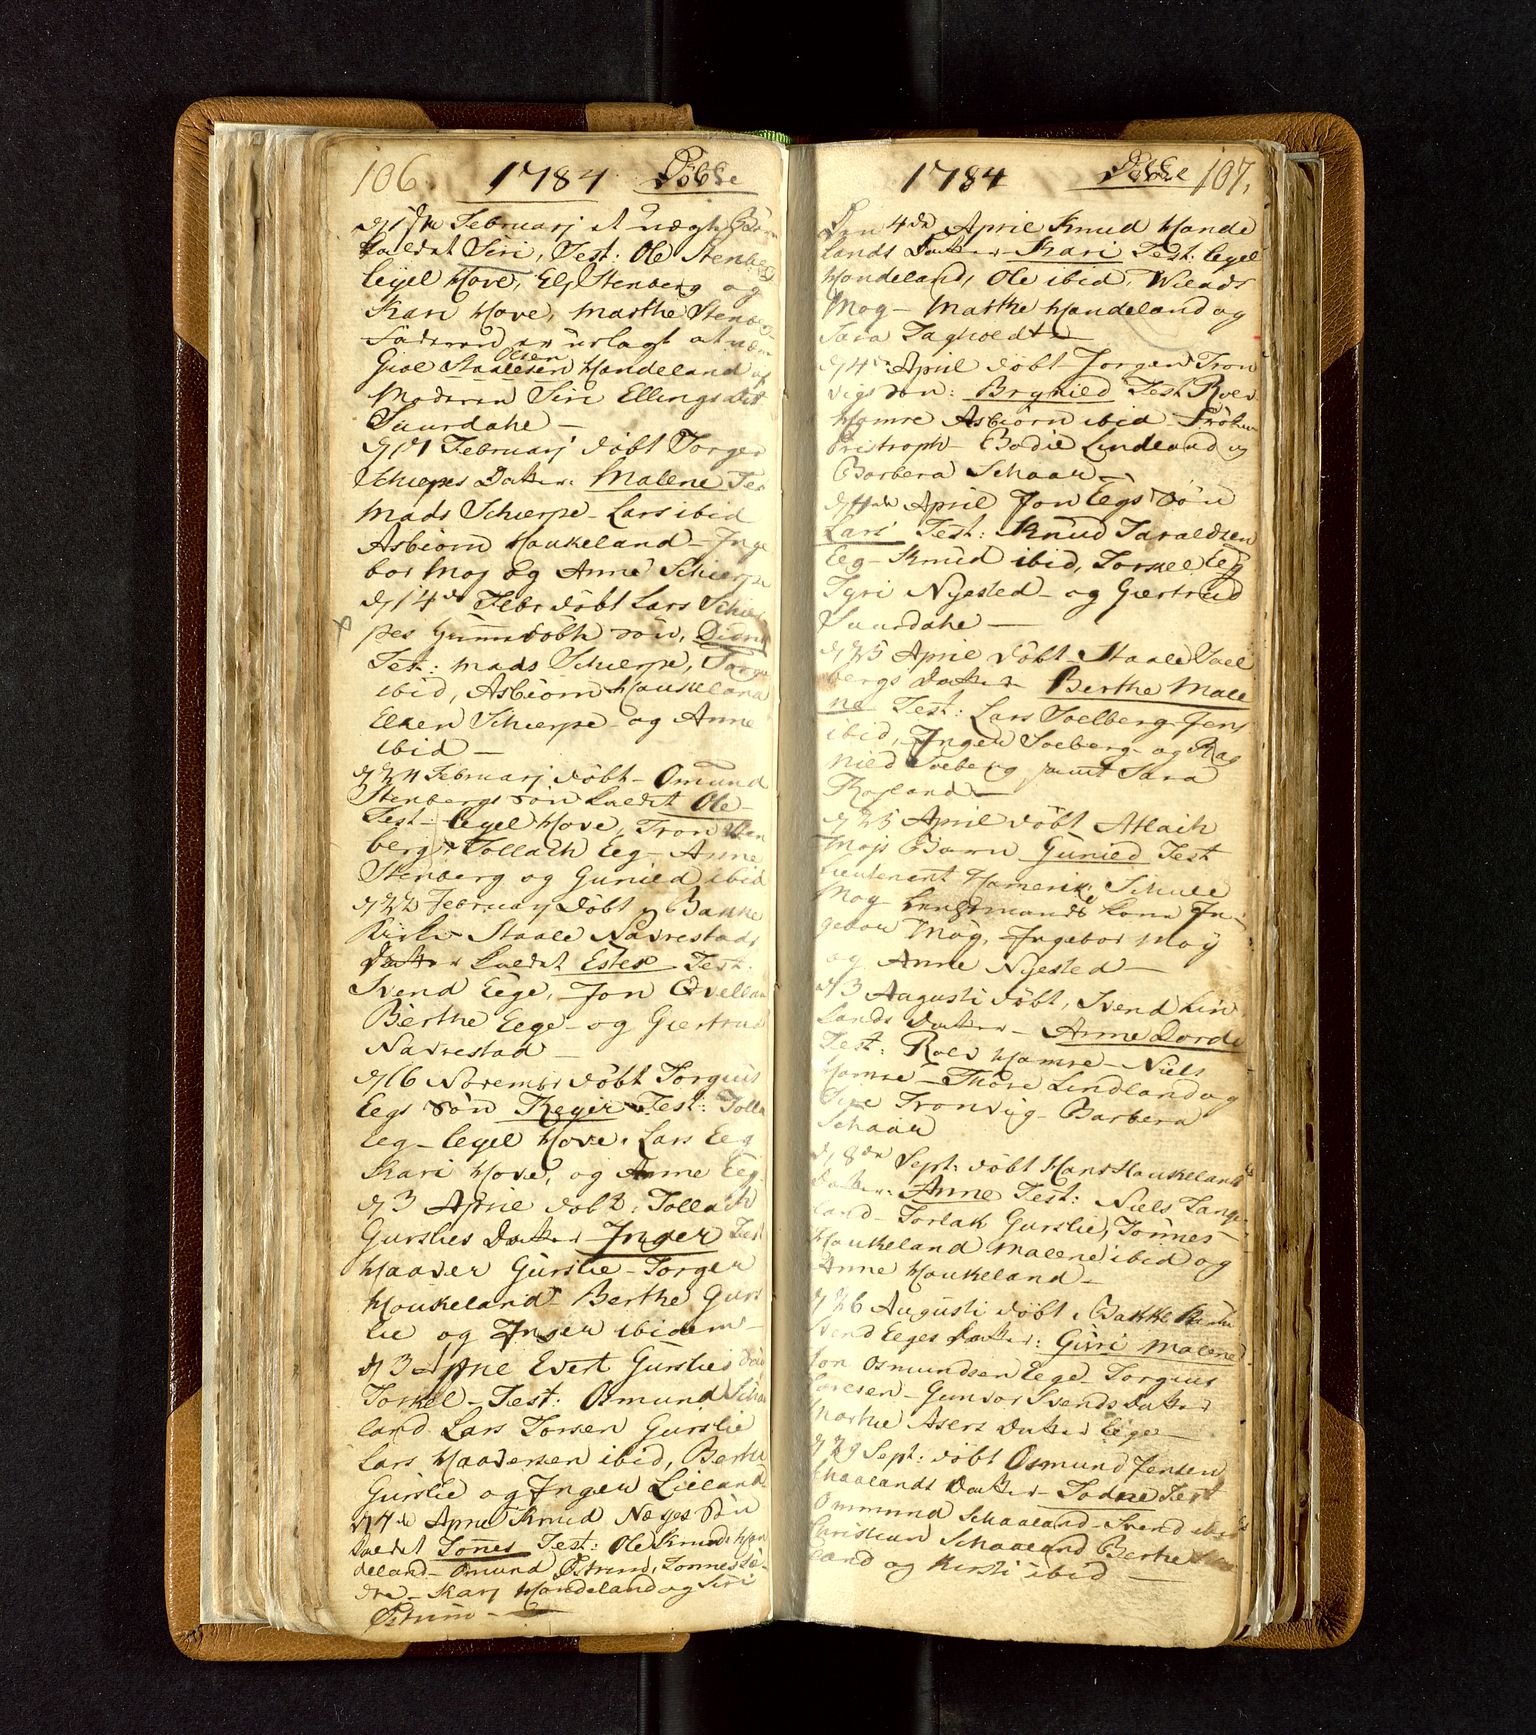 106. 1784 Döbte
Februarj et uægte Barn
kaldet Siri, Test: Ole Stenberg
Eegel Hove, Eli Stenberg og
Kari Hove, Marthe Stenberg
Faderen er utlagt at være
Giøe Staalesen Olsen Handeland og
Moderen Siri Ellings datt
Suurdahl —
Februarj döbt Torger
Schierpes Datter: Malene Tes
Mads Schierpe - Lars ibid
Asbiörn Haukeland - Inge
bor Moj og Anne Schierpe
d 14 de Febr döbt Lars Schier
pes hiemdöbte sön,
Test: Mads Schierpe, Torger
ibid, Asbiörn Haukeland
Elken Schierpe og Anne
ibid —
Februarj döbt - Omund
Stenbergs sön kaldet Ole -
Test - Eegel Hove, Tron Sten
berg, Tollach Eeg, Anne
Stenberg og Gunild ibid
d 22 February döbt i Bakke
Kirke Staale Navrestads
Datter kaldet Ester Test.
Svend Eege, Jon Qvelland
Berthe Eege - og Giertrud
Navrestad —
d 16 Novembr döbt Torgius
Eegs Sön Reyer Test: Tolla
Eeg - Eegel Hove, Lars Eeg
Kari Hove, og Anne Eeg.
d 3 April döbt: Tollach
Gurslies Datter Inger Test
Haaver Gurslie - Torger
Haukeland - Berthe Gurs
lie og Inger ibidem -
d 3 Apriil Evert Gurslies Sön
Torkel - Test: Osmund Scha
land Lars Torsen Gurslie
Lars Haaversen ibid, Berthe
Gurslie og Inger Lieland
d 4 de April Knud Nøges Sön
kaldet Tönes Test: Ole Knuds Han
deland - Omund Östrum, Tonnes
Kari Handeland og Siri
Östrum —
1784 Döbte 107.
Den 4de April Knud Hande
lands Datter Kari Test: Eegel
Handeland, Ole ibid, Willads
Mog - Marthe Handeland og
Sara Tagholdt —
d 4 April döbt Jörgen Tron
vigs Dom: Brynild Test Roev
Hamre Asbiörn ibid - Fröken
Pritroph - Bodil Lindland og
Barbera Schaar —
d 11de April Jon Eegs Sön
Lars Test: Knud Taraldsen
Eeg - Knud ibid, Torkel Eeg
Tyri Nyested - og Giertrud
Suurdahl —
d 25 April döbt Staale Soel
bergs Datter Berthe Male
ne Test: Lars Soelberg Jens
ibid, Inger Soeberg - og Rag
nild Soeberg samt Sara
Røyland —
d 25 April döbt Atlach
Mojs Barn Gunild Test
Lieutenant Hamerik: Schule
Moy - Lensmands kone In
gebor Moÿ, Ingebor Moÿ
og Anne Nyested —
d 3 Augusti döbt, Svend Lin
lands Datter - Anne Dorde
Test: Roev Hamre - Niels
Hamre - Thore Lindland og
Tronvig - Barbera
Schaar
d 8 de Sept: döbt Hans Haukelands
Datter: Anne Test: Niels Lange
land - Torlak Gurslie, Tönnes
Haukeland Malene ibid og
Anne Haukeland —
d 26 Augusti döbt i Bakke Kirke
Svend Eeges Datter: Giuri Malene
Jon Osmundsen Eege - Torgius
Larsen - Gunvor Svends Datter
Marthe Asers Datter Eege —
d 29 Sept: döbt Osmund Jensen
Schaalands Datter - Todne Test
Ommund Schaaland - Svend ibid
Christian Schaaland Berthe
land og Kirsti ibid —